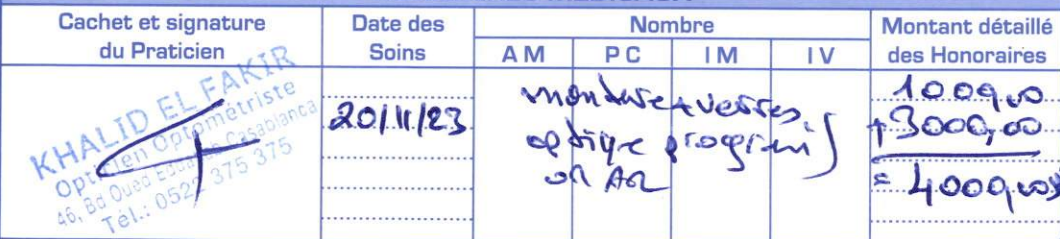 Cachet et signature
du Praticien
Date des
Soins
Nombre
AM PC IM IV
Montant détaillé
des Honoraires
KHALID EL FAKIR
Opticien Optométriste
46, Bd Oued Casablanca
Tél.: 0522 375 375
20/11/23
monture + verres
optique progressif
1000,00
+ 3000,00
= 4000,00